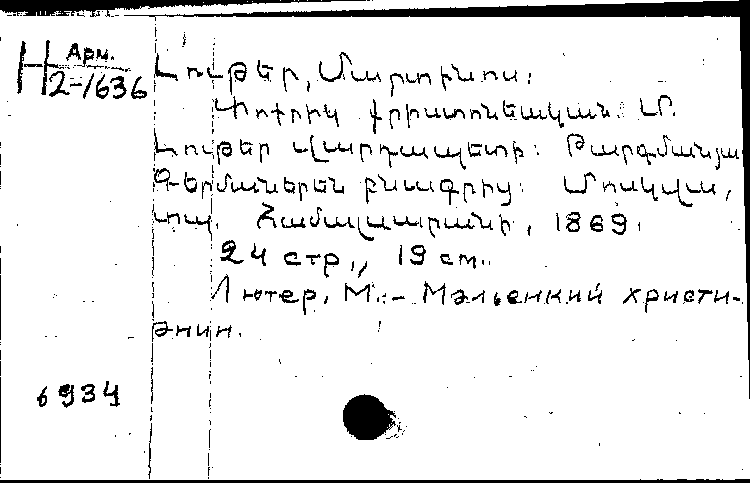 Арм.
Н 2-1636
Լութեր, Մարտինոս:
Փոքրիկ քրիստոնեական. Մ.
Լութեր վարդապետի: Թարգմանյա
Գերմաներեն բնագրից: Մոսկվա,
տպ. Համալսարանի, 1869.
24 стр., 19 см.
Лютер, М. - Маленкий христи-
анин.
6934